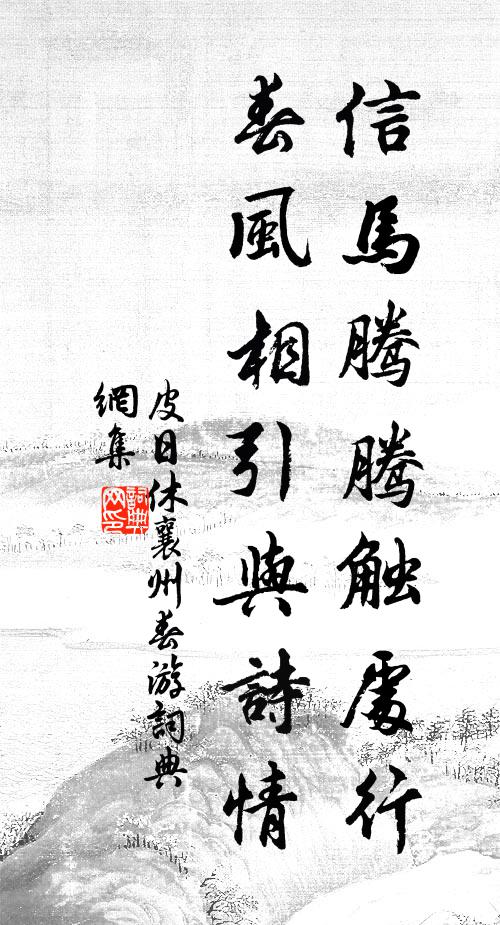 信馬騰騰触處行
春風相引與詩情
皮日休襄州春游詞典
網集
詞典
网印